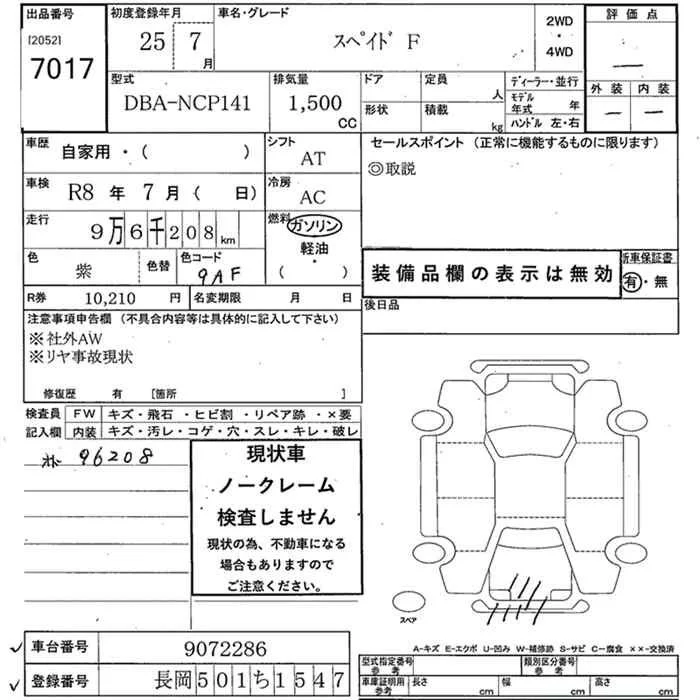 出品番号 初度登録年月 車名・グレード 2WD・4WD 評価点
[2052] 7017 25 7月 スペイド F —
型式 排気量 ドア 定員 人 ディーラー・並行 外装 内装
DBA-NCP141 1,500 CC 形状 積載 kg モデル年式 年 ハンドル 左・右 — —
車歴 自家用・( ) シフト AT セールスポイント (正常に機能するものに限ります)
◎取説
車検 R8 年 7 月 ( 日) 冷房 AC
走行 9万6千208km 燃料 ガソリン・軽油・( )
色 紫 色替 色コード 9AF 装備品欄の表示は無効 新車保証書 有・無
R券 10,210 円 名変期限 月 日 後日品
注意事項申告欄 (不具合内容等は具体的に記入して下さい)
※社外AW
※リヤ事故現状
修復歴 有 [箇所 ]
検査員記入欄 FW キズ・飛石・ヒビ割・リペア跡・×要
内装 キズ・汚レ・コゲ・穴・スレ・キレ・破レ
96208
現状車
ノークレーム
検査しません
現状の為、不動車になる
場合もありますので
ご注意ください。
スペア
A-キズ E-エクボ U-凹み W-補修跡 S-サビ C-腐食 ××-交換済
✓ 車台番号 9072286
✓ 登録番号 長岡501ち1547
型式指定番号 参考 類別区分番号 参考
車庫証明用 参考 長さ cm 幅 cm 高さ cm